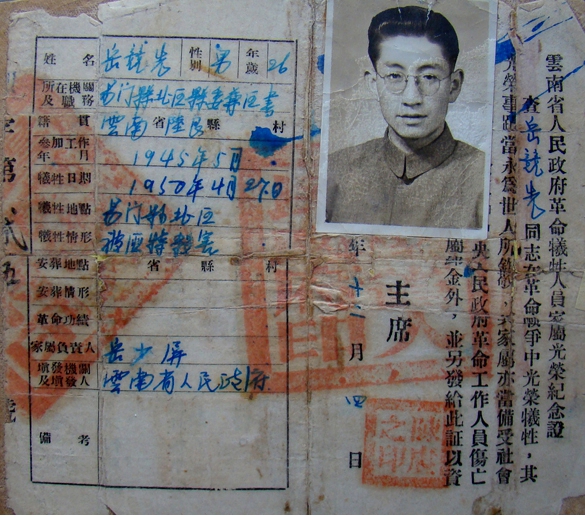 雲南省人民政府革命犧牲人員家屬光榮紀念證
查岳龍 同志在革命戰爭中光榮犧牲，其
光榮事蹟當永爲世人所 ，其家屬亦當備受社會
央人民政府革命工作人員傷亡
金外，並另發給此証以資
主席
年 十二 月 四 日
之印
姓名 岳龍 性別 男 年歲 26
所在機關及職務 易门縣北區 區書
籍貫 雲南 省 陸良 縣 村
參加工作年月 1945年5月
犧牲日期 1950年4月27日
犧牲地點 易门縣北區
犧牲情形
安葬地點 省 縣 村
安葬情形
革命功績
家屬負責人 岳少屏
填發機關及填發人 雲南省人民政府
備考
第 號